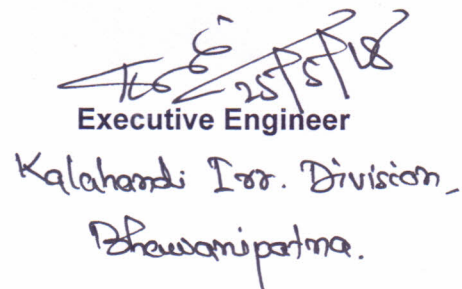 25/5/18
Executive Engineer
Kalahandi Irr. Division,
Bhawanipatna.